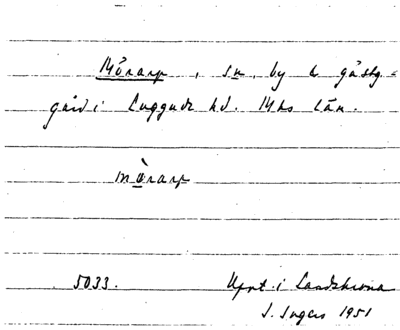 Mörarp, sn, by & gästg.=
gård i Luggude hd. Mhs län.
mò̱rarp
5033. Uppt. i Landskrona
I. Ingers 1951